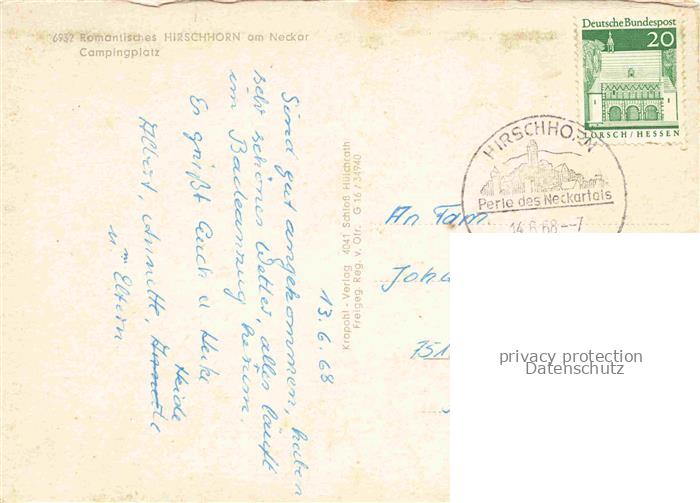 6932 Romantisches HIRSCHHORN am Neckar
Campingplatz
Deutsche Bundespost
20
LORSCH / HESSEN
HIRSCHHORN
Perle des Neckartals
14.6.68--7
13.6.68
Sind gut angekommen, haben
sehr schönes Wetter, alles läuft
im Badeanzug herum.
Es grüßt Euch u Heike
Heide
Albert, Annette,
u. Eltern
Krapohl - Verlag 4041 Schloß Hülchrath
Freigeg Reg. v. Ofr. G 16 / 34940
An Fam.
Joha
751
privacy protection
Datenschutz